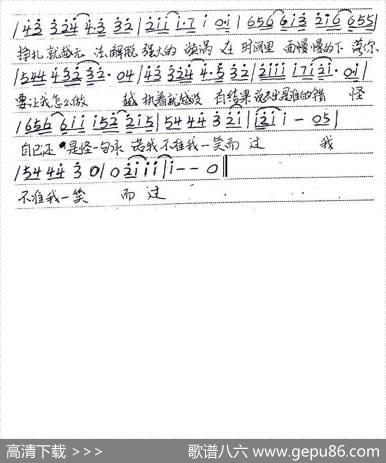 |4̇3̇ 3̇2̇4̇ 4̇·3̇ 3̇2̇|2̇i̇i̇ i̇·7 i̇ 0i̇|656 6i̇3̇ 2̇i̇6 655|
挣扎就越无 法解脱 强大的 漩涡 在 时间里 面慢慢的下 落你
|544 4̇3̇2̇ 3̇2̇· 04|4̇3̇ 3̇2̇4̇ 4̇·5̇ 3̇2̇|2̇i̇i̇i̇ i̇7i̇2̇i̇· 0i̇|
要让我怎么做 越 执着就越没 有结果 说不出是谁的错 怪
|656 6i̇i̇ i̇52̇ 2̇i̇5|54 44 3̇ 2̇i̇|i̇2̇i̇ i̇ - 05|
自己还是怪一句承 诺我不准我一笑而过 我
|54 44 3̇ 0|0 2̇i̇i̇i̇|i̇-- 0‖
不准我一笑 而过
高清下载 >>> 歌谱八六 www.gepu86.com